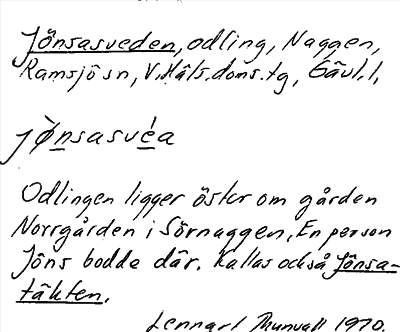 Jönsasveden, odling, Naggen,
Ramsjö sn, V. Häls. doms. tg, Gävl. l.
jø̀nsasvéa
Odlingen ligger öster om gården
Norrgården i Sörnaggen, En person
Jöns bodde där. Kallas också Jönsa-
täkten.
Lennart Thunvall 1970.